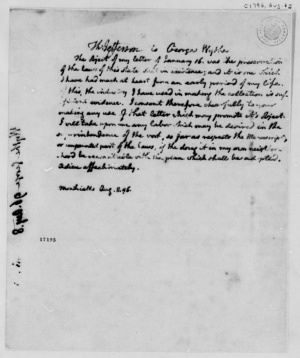 C 1796, Aug. 8
Th Jefferson to George Wythe
The object of my letter of January 16. was the preservation
of the laws of this state still in existence; and it is one which
I have had much at heart from an early period of my life.
Of this, the industry I have used in making the collection is suf-
ficient evidence. I consent therefore chearfully to your
making any use of that letter which may promote it's object.
I will take upon me any labor which may be devised in the
superintendence of the work, so far as respects the Manuscript
or unprinted part of the laws, if the doing it in my own neighbor-
hood be reconcileable with the plan which shall be adopted.
Adieu affectionately.
Monticello Aug. 8. 96.
17195
Wythe George 96. Aug. 8